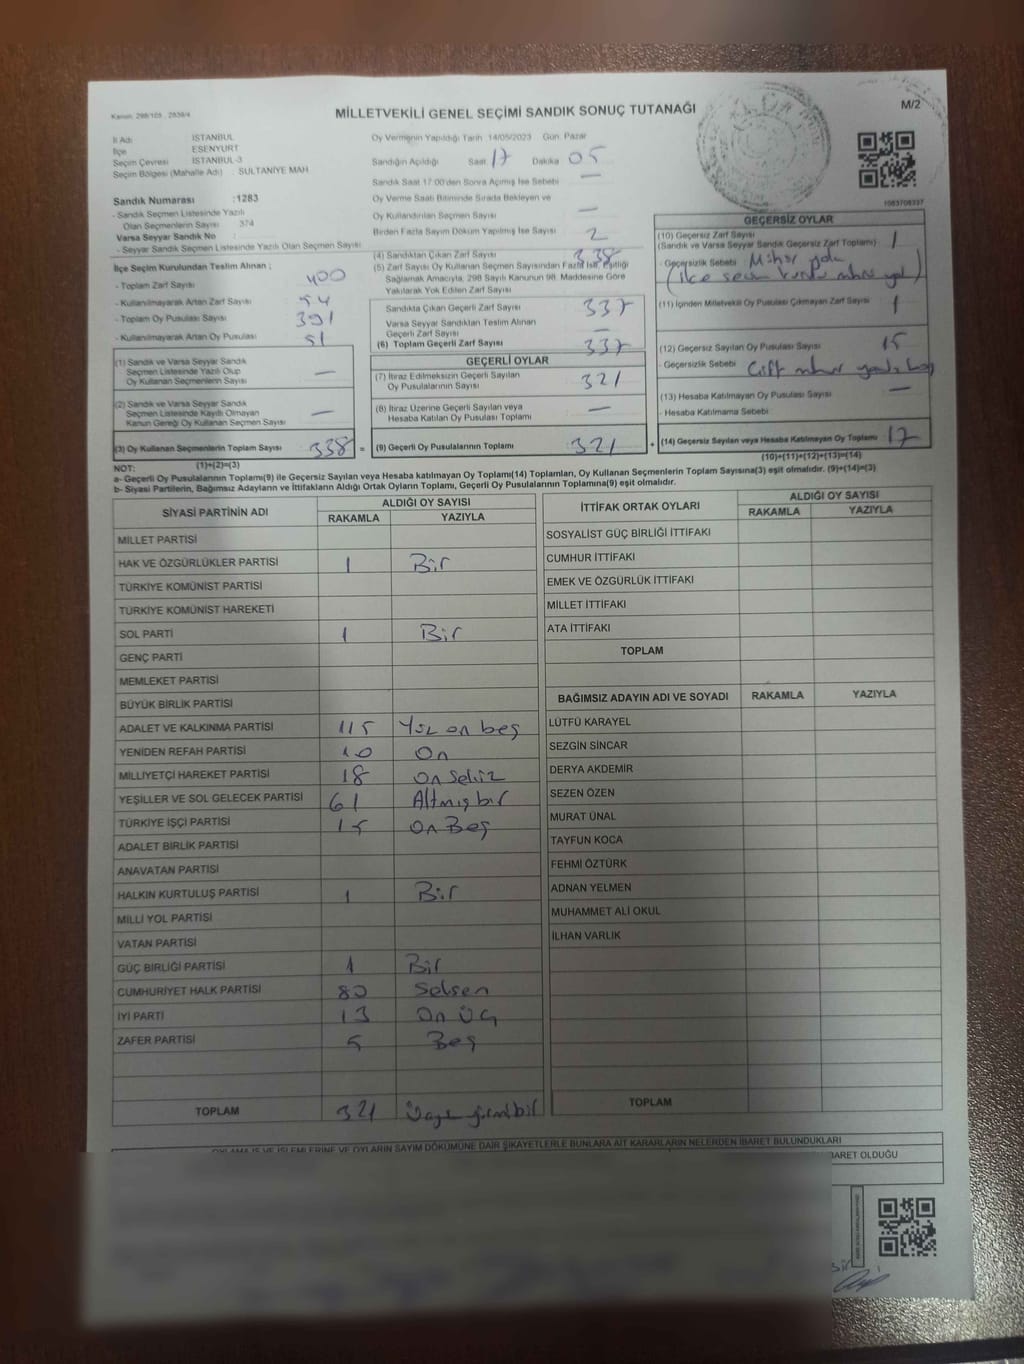 Kanun: 298/105 , 2839/4
MİLLETVEKİLİ GENEL SEÇİMİ SANDIK SONUÇ TUTANAĞI
M/2
İl Adı İSTANBUL
İlçe ESENYURT
Seçim Çevresi İSTANBUL-3
Seçim Bölgesi (Mahalle Adı) : SULTANİYE MAH
Sandık Numarası :1283
- Sandık Seçmen Listesinde Yazılı
Olan Seçmenlerin Sayısı : 374
Varsa Seyyar Sandık No
- Seyyar Sandık Seçmen Listesinde Yazılı Olan Seçmen Sayısı
Oy Vermenin Yapıldığı Tarih 14/05/2023 Gün Pazar
Sandığın Açıldığı Saat 17 Dakika 05
Sandık Saat 17:00'den Sonra Açılmış İse Sebebi —
Oy Verme Saati Bitiminde Sırada Bekleyen ve
Oy Kullandırılan Seçmen Sayısı —
Birden Fazla Sayım Döküm Yapılmış İse Sayısı 2
İlçe Seçim Kurulundan Teslim Alınan ;
- Toplam Zarf Sayısı 400
- Kullanılmayarak Artan Zarf Sayısı
- Toplam Oy Pusulası Sayısı 391
- Kullanılmayarak Artan Oy Pusulası 51
(1) Sandık ve Varsa Seyyar Sandık
Seçmen Listesinde Yazılı Olup
Oy Kullanan Seçmenlerin Sayısı —
(2) Sandık ve Varsa Seyyar Sandık
Seçmen Listesinde Kayıtlı Olmayan
Kanun Gereği Oy Kullanan Seçmen Sayısı —
(3) Oy Kullanan Seçmenlerin Toplam Sayısı 338 =
(1)+(2)=(3)
(4) Sandıktan Çıkan Zarf Sayısı 338
(5) Zarf Sayısı Oy Kullanan Seçmen Sayısından Fazla İse, Eşitliği
Sağlamak Amacıyla, 298 Sayılı Kanunun 98. Maddesine Göre
Yakılarak Yok Edilen Zarf Sayısı
Sandıkta Çıkan Geçerli Zarf Sayısı 337
Varsa Seyyar Sandıktan Teslim Alınan
Geçerli Zarf Sayısı —
(6) Toplam Geçerli Zarf Sayısı 337
GEÇERLİ OYLAR
(7) İtiraz Edilmeksizin Geçerli Sayılan
Oy Pusulalarının Sayısı 321
(8) İtiraz Üzerine Geçerli Sayılan veya
Hesaba Katılan Oy Pusulası Toplamı —
(9) Geçerli Oy Pusulalarının Toplamı 321 +
GEÇERSİZ OYLAR
(10) Geçersiz Zarf Sayısı
(Sandık ve Varsa Seyyar Sandık Geçersiz Zarf Toplamı) 1
- Geçersizlik Sebebi Mühür yok
(ilçe seçim kurulu mührü yok)
(11) İçinden Milletvekili Oy Pusulası Çıkmayan Zarf Sayısı 1
(12) Geçersiz Sayılan Oy Pusulası Sayısı 15
- Geçersizlik Sebebi Çift mühür
(13) Hesaba Katılmayan Oy Pusulası Sayısı —
- Hesaba Katılmama Sebebi
(14) Geçersiz Sayılan veya Hesaba Katılmayan Oy Toplamı 17
(10)+(11)+(12)+(13)=(14)
NOT:
a- Geçerli Oy Pusulalarının Toplamı(9) ile Geçersiz Sayılan veya Hesaba katılmayan Oy Toplamı(14) Toplamları, Oy Kullanan Seçmenlerin Toplam Sayısına(3) eşit olmalıdır. (9)+(14)=(3)
b- Siyasi Partilerin, Bağımsız Adayların ve İttifakların Aldığı Ortak Oyların Toplamı, Geçerli Oy Pusulalarının Toplamına(9) eşit olmalıdır.
SİYASİ PARTİNİN ADI ALDIĞI OY SAYISI
RAKAMLA YAZIYLA
MİLLET PARTİSİ
HAK VE ÖZGÜRLÜKLER PARTİSİ 1 Bir
TÜRKİYE KOMÜNİST PARTİSİ
TÜRKİYE KOMÜNİST HAREKETİ
SOL PARTİ 1 Bir
GENÇ PARTİ
MEMLEKET PARTİSİ
BÜYÜK BİRLİK PARTİSİ
ADALET VE KALKINMA PARTİSİ 115 Yüz on beş
YENİDEN REFAH PARTİSİ 10 On
MİLLİYETÇİ HAREKET PARTİSİ 18 On Sekiz
YEŞİLLER VE SOL GELECEK PARTİSİ 61 Altmış bir
TÜRKİYE İŞÇİ PARTİSİ 15 On Beş
ADALET BİRLİK PARTİSİ
ANAVATAN PARTİSİ
HALKIN KURTULUŞ PARTİSİ 1 Bir
MİLLİ YOL PARTİSİ
VATAN PARTİSİ
GÜÇ BİRLİĞİ PARTİSİ 1 Bir
CUMHURİYET HALK PARTİSİ 80 Seksen
İYİ PARTİ 13 On Üç
ZAFER PARTİSİ 5 Beş
TOPLAM 321 Üçyüz yirmi bir
İTTİFAK ORTAK OYLARI ALDIĞI OY SAYISI
RAKAMLA YAZIYLA
SOSYALİST GÜÇ BİRLİĞİ İTTİFAKI
CUMHUR İTTİFAKI
EMEK VE ÖZGÜRLÜK İTTİFAKI
MİLLET İTTİFAKI
ATA İTTİFAKI
TOPLAM
BAĞIMSIZ ADAYIN ADI VE SOYADI RAKAMLA YAZIYLA
LÜTFÜ KARAYEL
SEZGİN SİNCAR
DERYA AKDEMİR
SEZEN ÖZEN
MURAT ÜNAL
TAYFUN KOCA
FEHMİ ÖZTÜRK
ADNAN YELMEN
MUHAMMET ALİ OKUL
İLHAN VARLIK
TOPLAM
OYLAMA İŞ VE İŞLEMLERİNE VE OYLARIN SAYIM DÖKÜMÜNE DAİR ŞİKAYETLERLE BUNLARA AİT KARARLARIN NELERDEN İBARET BULUNDUKLARI
BARET OLDUĞU